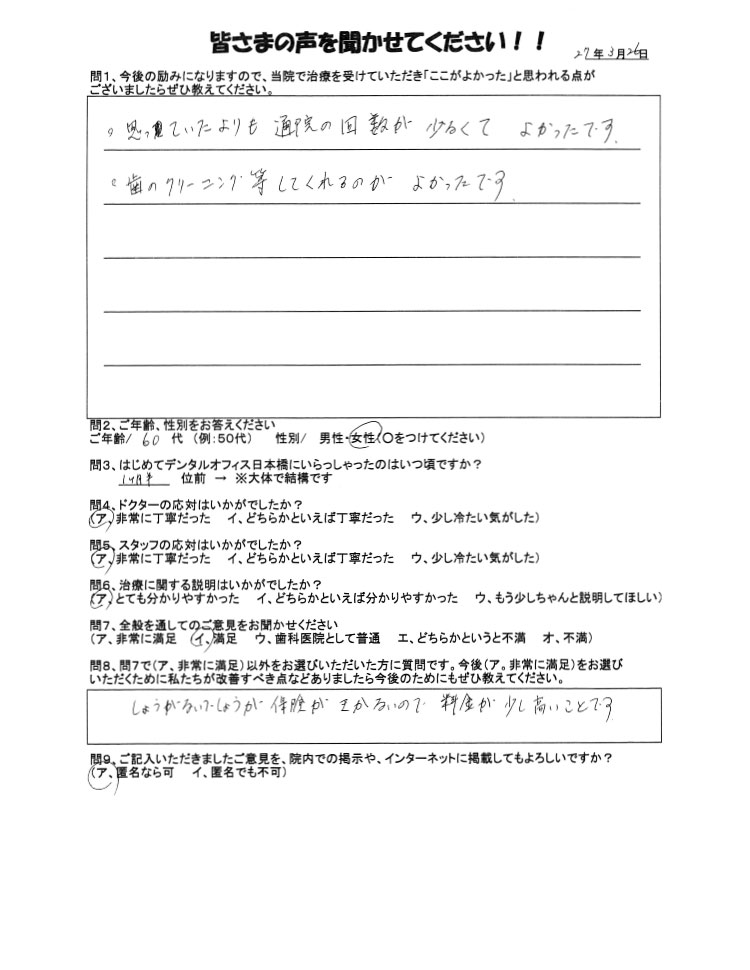 皆さまの声を聞かせてください！！
27年3月26日
問1、今後の励みになりますので、当院で治療を受けていただき「ここがよかった」と思われる点が
ございましたらぜひ教えてください。
思っていたよりも 通院の回数が 少なくて よかったです。
歯のクリーニング等してくれるのが よかったです。
問2、ご年齢、性別をお答えください
ご年齢/ 60 代 （例：50代） 性別/ 男性・女性（○をつけてください）
問3、はじめてデンタルオフィス日本橋にいらっしゃったのはいつ頃ですか？
位前 → ※大体で結構です
問4、ドクターの応対はいかがでしたか？
（ア、非常に丁寧だった イ、どちらかといえば丁寧だった ウ、少し冷たい気がした）
問5、スタッフの応対はいかがでしたか？
（ア、非常に丁寧だった イ、どちらかといえば丁寧だった ウ、少し冷たい気がした）
問6、治療に関する説明はいかがでしたか？
（ア、とても分かりやすかった イ、どちらかといえば分かりやすかった ウ、もう少しちゃんと説明してほしい）
問7、全般を通してのご意見をお聞かせください
（ア、非常に満足 イ、満足 ウ、歯科医院として普通 エ、どちらかというと不満 オ、不満）
問8、問7で（ア、非常に満足）以外をお選びいただいた方に質問です。今後（ア。非常に満足）をお選び
いただくために私たちが改善すべき点などありましたら今後のためにもぜひ教えてください。
しょうがないでしょうが 保険が きかないので 料金が 少し高いことです
問9、ご記入いただきましたご意見を、院内での掲示や、インターネットに掲載してもよろしいですか？
（ア、匿名なら可 イ、匿名でも不可）